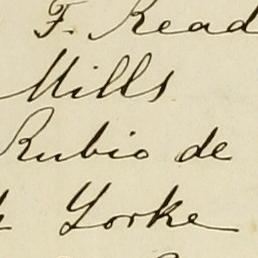 F. Read
Mills
Rubio de
Yorke